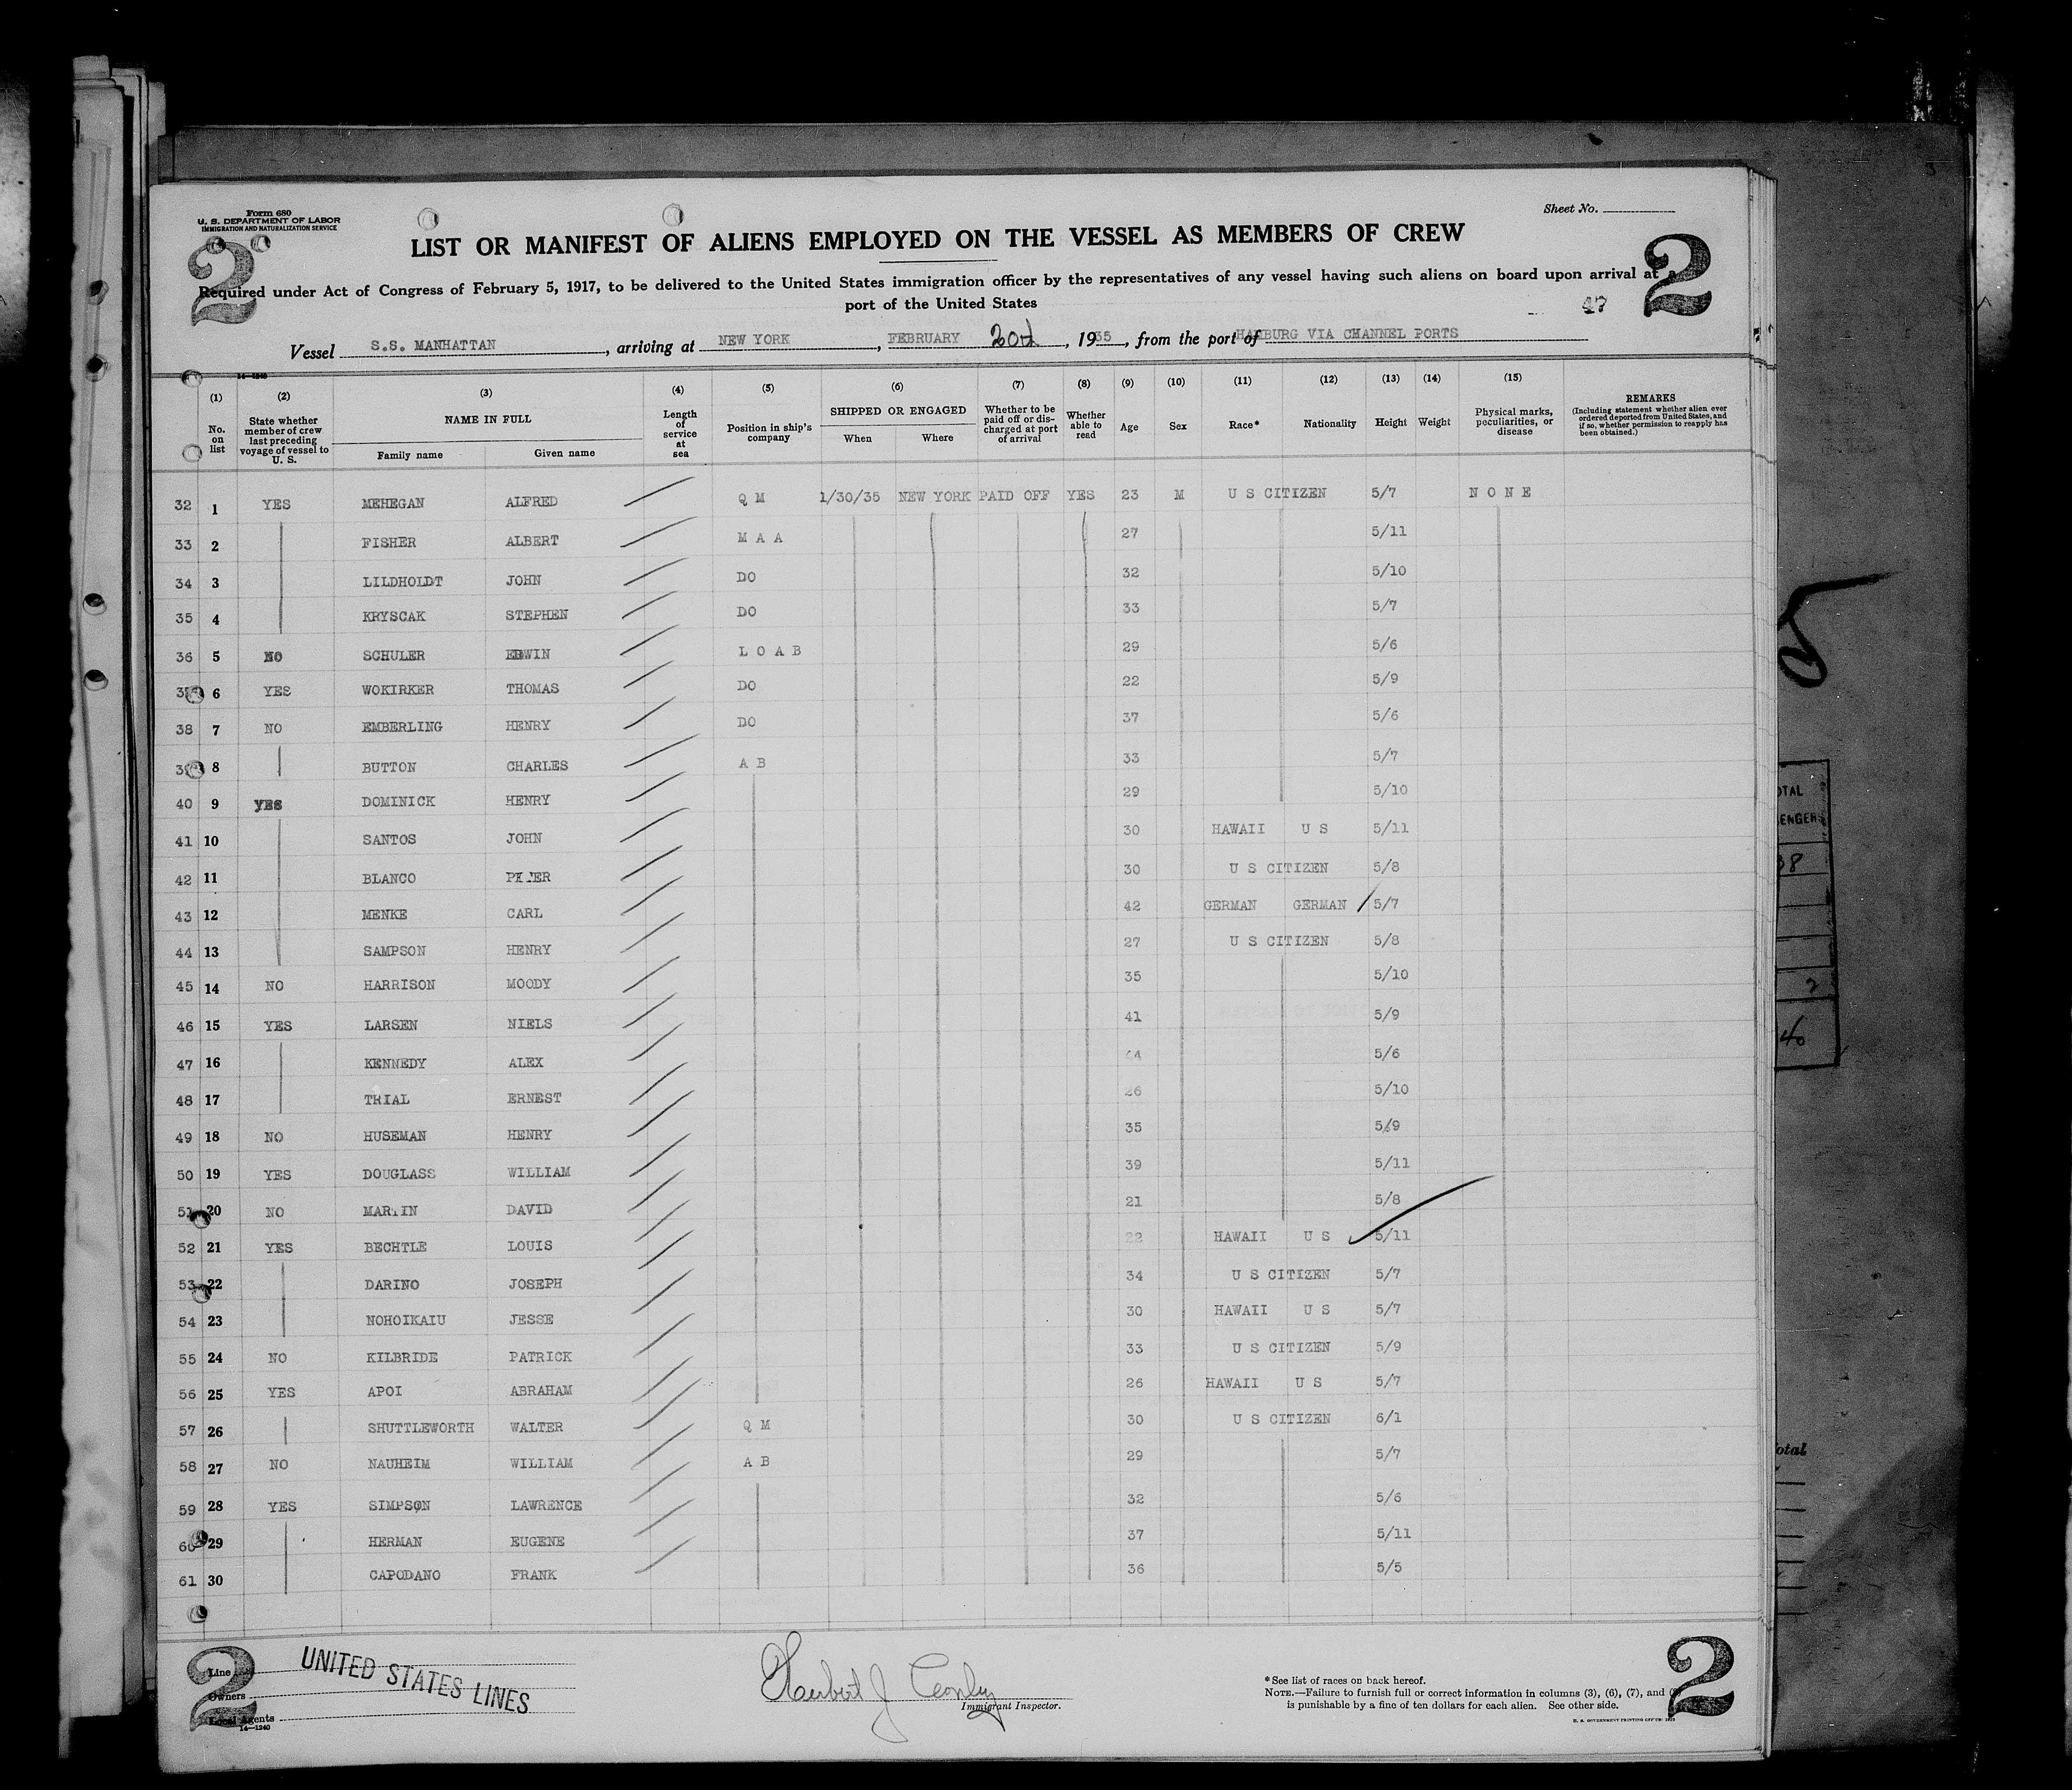 Form 680
U. S. DEPARTMENT OF LABOR
IMMIGRATION AND NATURALIZATION SERVICE
Sheet No.
2 2
LIST OR MANIFEST OF ALIENS EMPLOYED ON THE VESSEL AS MEMBERS OF CREW
Required under Act of Congress of February 5, 1917, to be delivered to the United States immigration officer by the representatives of any vessel having such aliens on board upon arrival at a
port of the United States
47
Vessel S.S. MANHATTAN, arriving at NEW YORK, FEBRUARY 20th, 1935, from the port of HAMBURG VIA CHANNEL PORTS
14—1240
(1) (2) (3) (4) (5) (6) (7) (8) (9) (10) (11) (12) (13) (14) (15)
No. on list
State whether member of crew last preceding voyage of vessel to U. S.
NAME IN FULL
Family name Given name
Length of service at sea
Position in ship's company
SHIPPED OR ENGAGED
When Where
Whether to be paid off or discharged at port of arrival
Whether able to read
Age Sex Race* Nationality Height Weight
Physical marks, peculiarities, or disease
REMARKS
(Including statement whether alien ever ordered deported from United States, and if so, whether permission to reapply has been obtained.)
32 1 YES MEHEGAN ALFRED Q M 1/30/35 NEW YORK PAID OFF YES 23 M U S CITIZEN 5/7 N O N E
33 2 FISHER ALBERT M A A 27 5/11
34 3 LILDHOLDT JOHN DO 32 5/10
35 4 KRYSCAK STEPHEN DO 33 5/7
36 5 NO SCHULER EDWIN L O A B 29 5/6
6 YES WOKIRKER THOMAS DO 22 5/9
38 7 NO EMBERLING HENRY DO 37 5/6
8 BUTTON CHARLES A B 33 5/7
40 9 YES DOMINICK HENRY 29 5/10
41 10 SANTOS JOHN 30 HAWAII U S 5/11
42 11 BLANCO 30 U S CITIZEN 5/8
43 12 MENKE CARL 42 GERMAN GERMAN 5/7
44 13 SAMPSON HENRY 27 U S CITIZEN 5/8
45 14 NO HARRISON MOODY 35 5/10
46 15 YES LARSEN NIELS 41 5/9
47 16 KENNEDY ALEX 5/6
48 17 TRIAL ERNEST 26 5/10
49 18 NO HUSEMAN HENRY 35 5/9
50 19 YES DOUGLASS WILLIAM 39 5/11
51 20 NO MARTIN DAVID 21 5/8
52 21 YES BECHTLE LOUIS 22 HAWAII U S 5/11
53 22 DARINO JOSEPH 34 U S CITIZEN 5/7
54 23 NOHOIKAIU JESSE 30 HAWAII U S 5/7
55 24 NO KILBRIDE PATRICK 33 U S CITIZEN 5/9
56 25 YES APOI ABRAHAM 26 HAWAII U S 5/7
57 26 SHUTTLEWORTH WALTER Q M 30 U S CITIZEN 6/1
58 27 NO NAUHEIM WILLIAM A B 29 5/7
59 28 YES SIMPSON LAWRENCE 32 5/6
60 29 HERMAN EUGENE 37 5/11
61 30 CAPODANO FRANK 36 5/5
2 2
Line UNITED STATES LINES
Owners
Local Agents
14—1240
Herbert J
Immigrant Inspector.
*See list of races on back hereof.
NOTE.—Failure to furnish full or correct information in columns (3), (6), (7), and
is punishable by a fine of ten dollars for each alien. See other side.